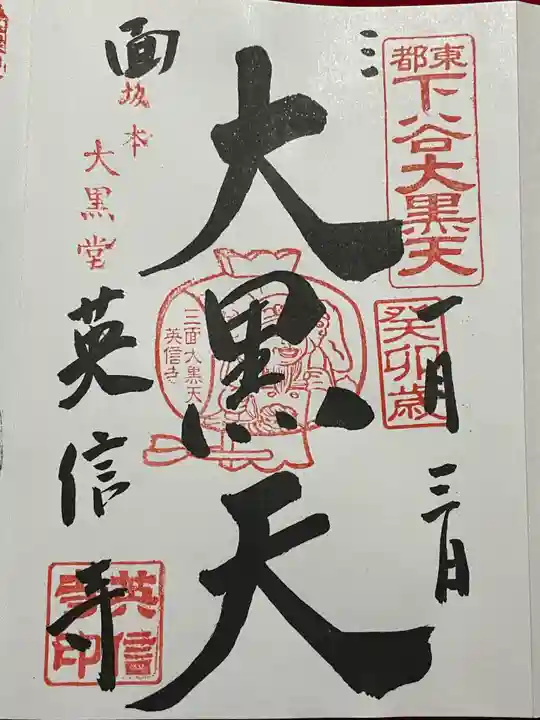 三
東都
下谷大黒天
癸卯歳
一月三日
大黒天
三面大黒天
英信寺
面
坂本
大黒堂
英信寺
英信寺印